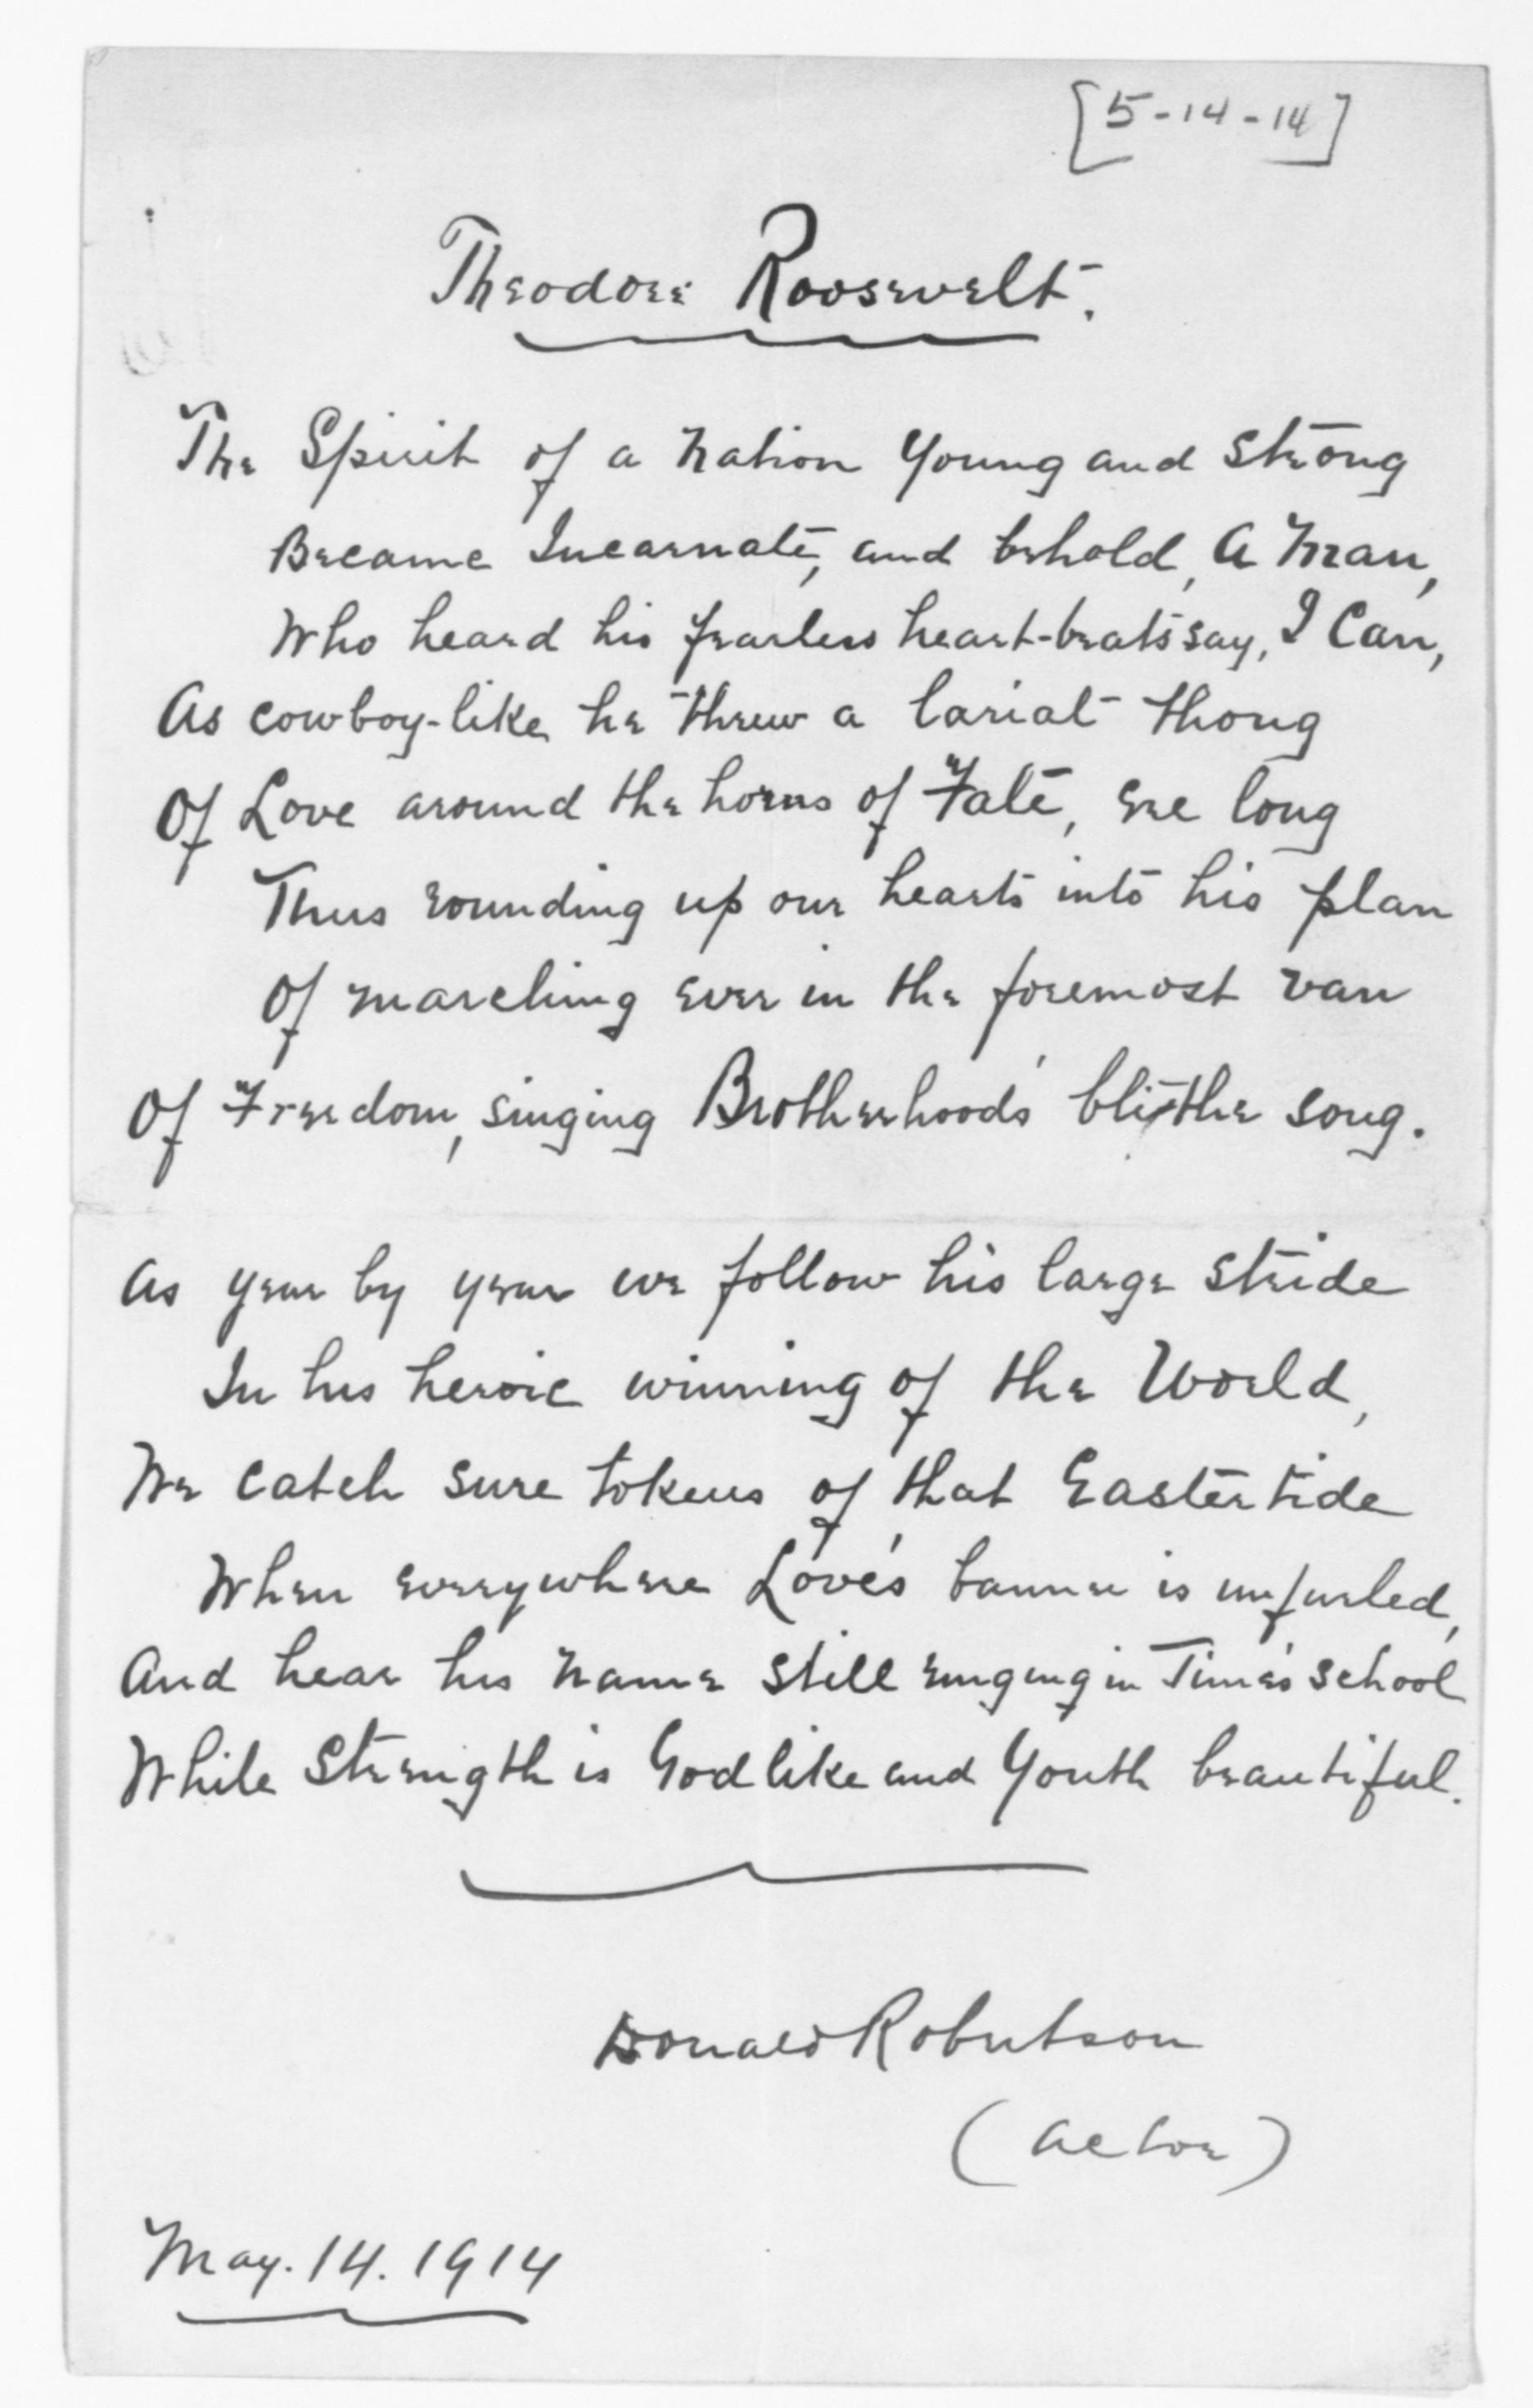 [5-14-14]
Theodore Roosevelt.
The Spirit of a Nation Young and Strong
Became Incarnate, and behold, A Man,
Who heard his fearless heart-beats say, I Can,
As cowboy-like he threw a lariat thong
Of Love around the horns of Fate, ere long
Thus rounding up our hearts into his plan
Of marching ever in the foremost van
Of Freedom, singing Brotherhood's blithe song.
As year by year we follow his large stride
In his heroic winning of the World,
We catch sure tokens of that Eastertide
When everywhere Love's banner is unfurled,
And hear his name still ringing in Time's school
While Strength is Godlike and Youth beautiful.
Donald Robertson
(Actor)
May. 14. 1914